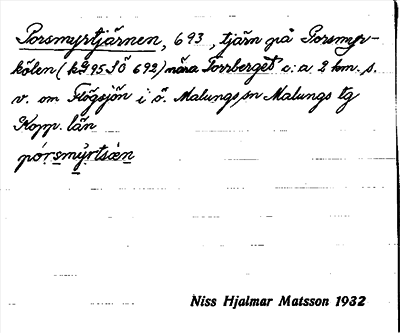 Porsmyrtjärnen, 693, tjärn på Porsmyr-
kölen (kg 95 SÖ 692) nära Torrberget c:a 2 km. s.
v. om Flögsjön i ö. Malungs sn Malungs tg
Kopp. län
pórsmỳrtsɛn
Niss Hjalmar Matsson 1932